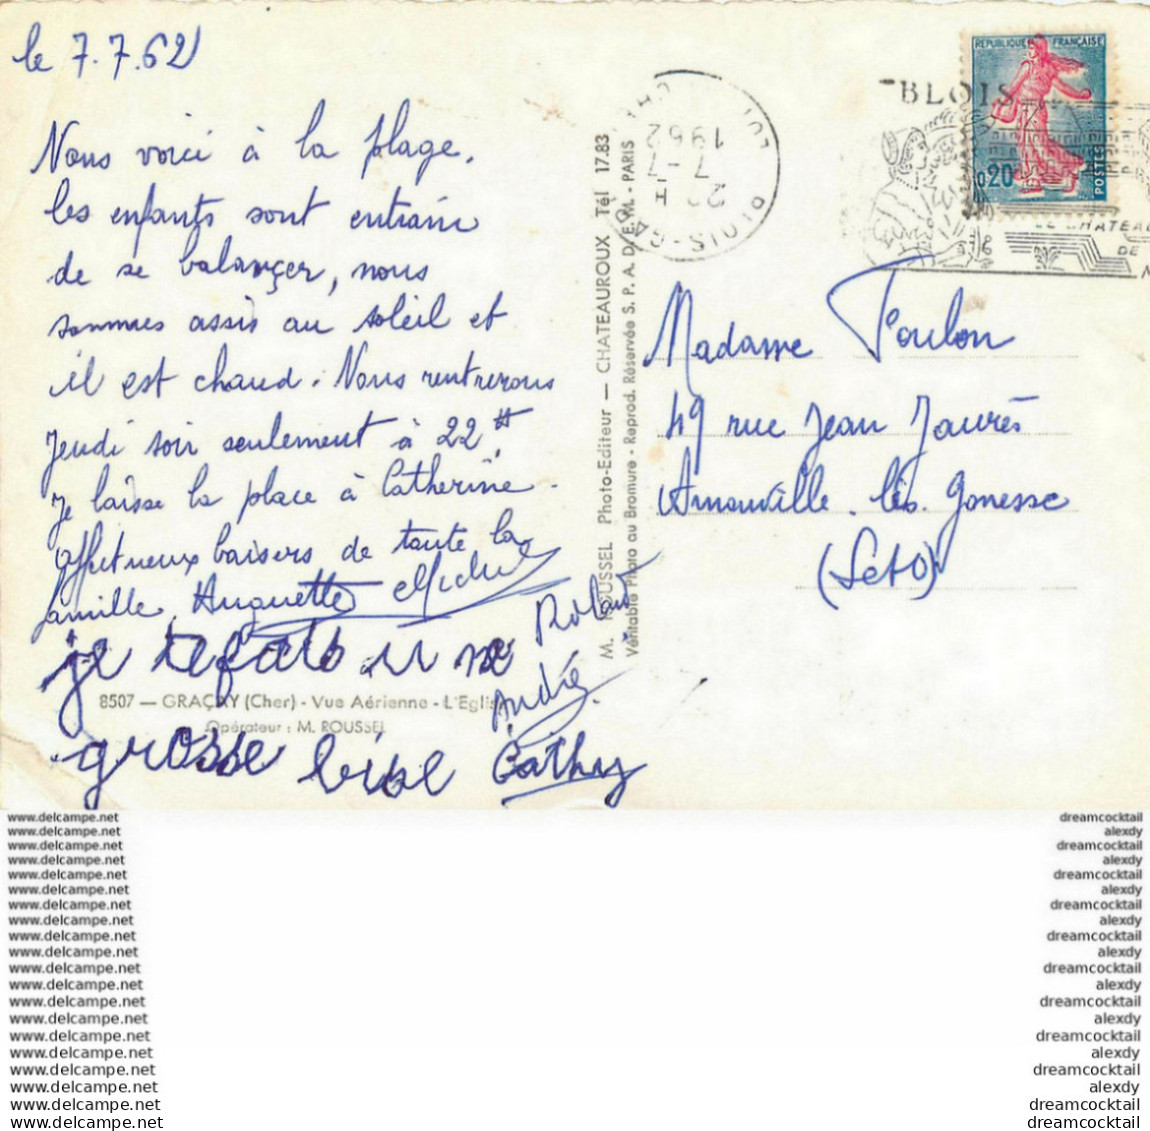 le 7.7.62
Nous voici à la plage,
les enfants sont entrain
de se balançer, nous
sommes assis au soleil et
il est chaud. Nous rentrerons
Jeudi soir seulement à 22H.
Je laisse la place à Catherine.
Affectueux baisers de toute la
famille, Huguette Michel
Roland
André
je te fais une
grosse bise Cathy
8507 — GRAÇAY (Cher) - Vue Aérienne - L'Eglise
Opérateur : M. ROUSSEL
M. ROUSSEL Photo-Editeur — CHATEAUROUX Tél 17.83
Véritable Photo au Bromure - Reprod. Réservée S. P. A. D. E. M. - PARIS
BLOIS-GARE
22 H
7-7
1962
BLOIS
LE CHATEAU
DE
REPUBLIQUE FRANÇAISE
0,20
POSTES
Madame Toulon
49 rue Jean Jaurès
Arnouville-lès-Gonesse
(SetO)
www.delcampe.net
www.delcampe.net
www.delcampe.net
www.delcampe.net
www.delcampe.net
www.delcampe.net
www.delcampe.net
www.delcampe.net
www.delcampe.net
www.delcampe.net
www.delcampe.net
www.delcampe.net
www.delcampe.net
www.delcampe.net
www.delcampe.net
www.delcampe.net
www.delcampe.net
www.delcampe.net
www.delcampe.net
www.delcampe.net
dreamcocktail
alexdy
dreamcocktail
alexdy
dreamcocktail
alexdy
dreamcocktail
alexdy
dreamcocktail
alexdy
dreamcocktail
alexdy
dreamcocktail
alexdy
dreamcocktail
alexdy
dreamcocktail
alexdy
dreamcocktail
dreamcocktail